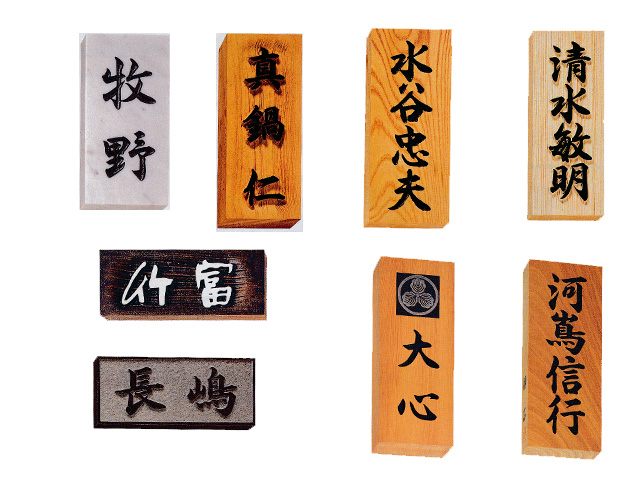 牧野
真鍋仁
水谷忠夫
清水敏明
竹富
長嶋
大心
河嶌信行